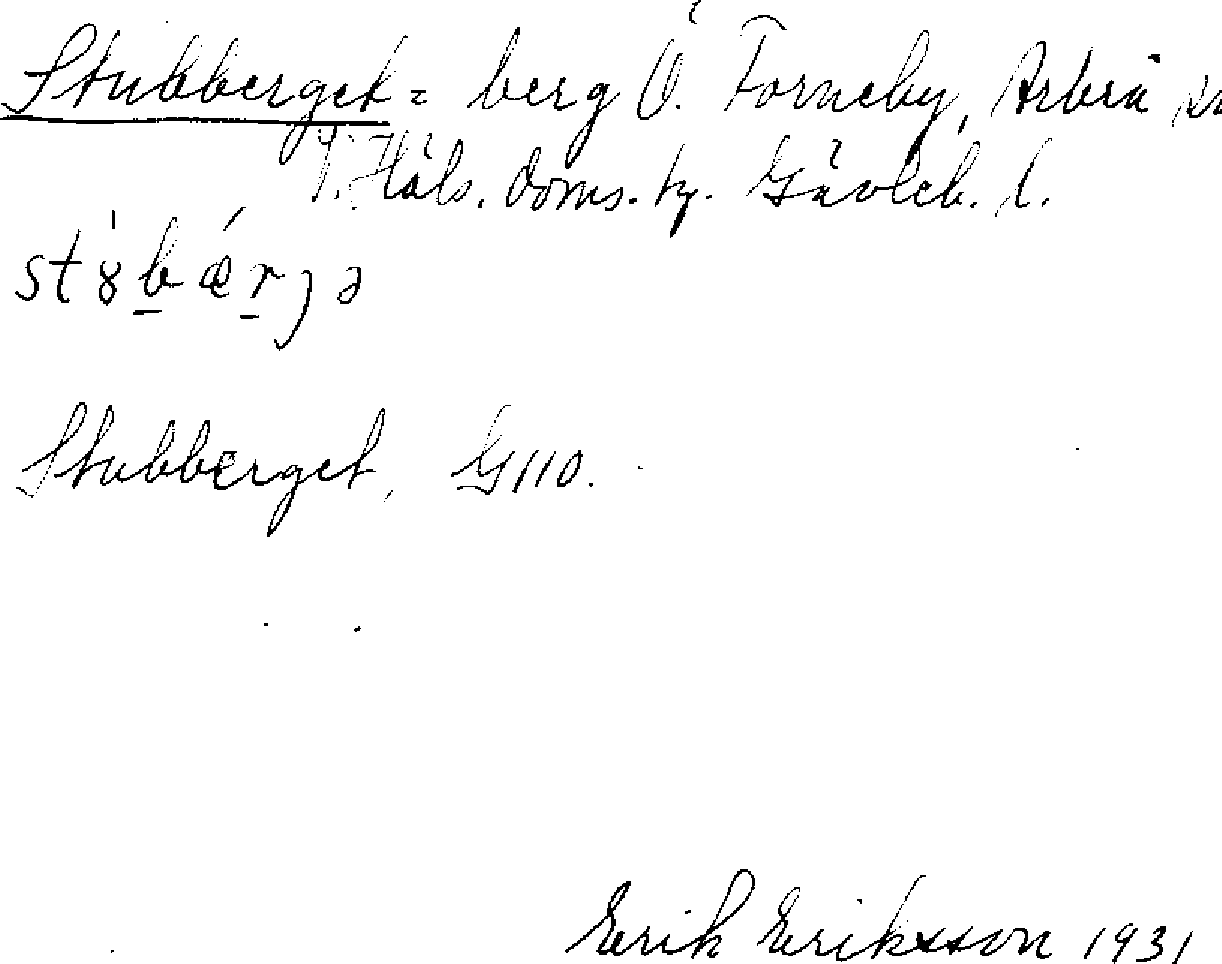 Stubberget = berg Ö. Forneby, Arbrå sn
V. Häls. doms. tg. Gävleb. l.
st𝈀bærjə
Stubberget, G110.
Erik Eriksson 1931